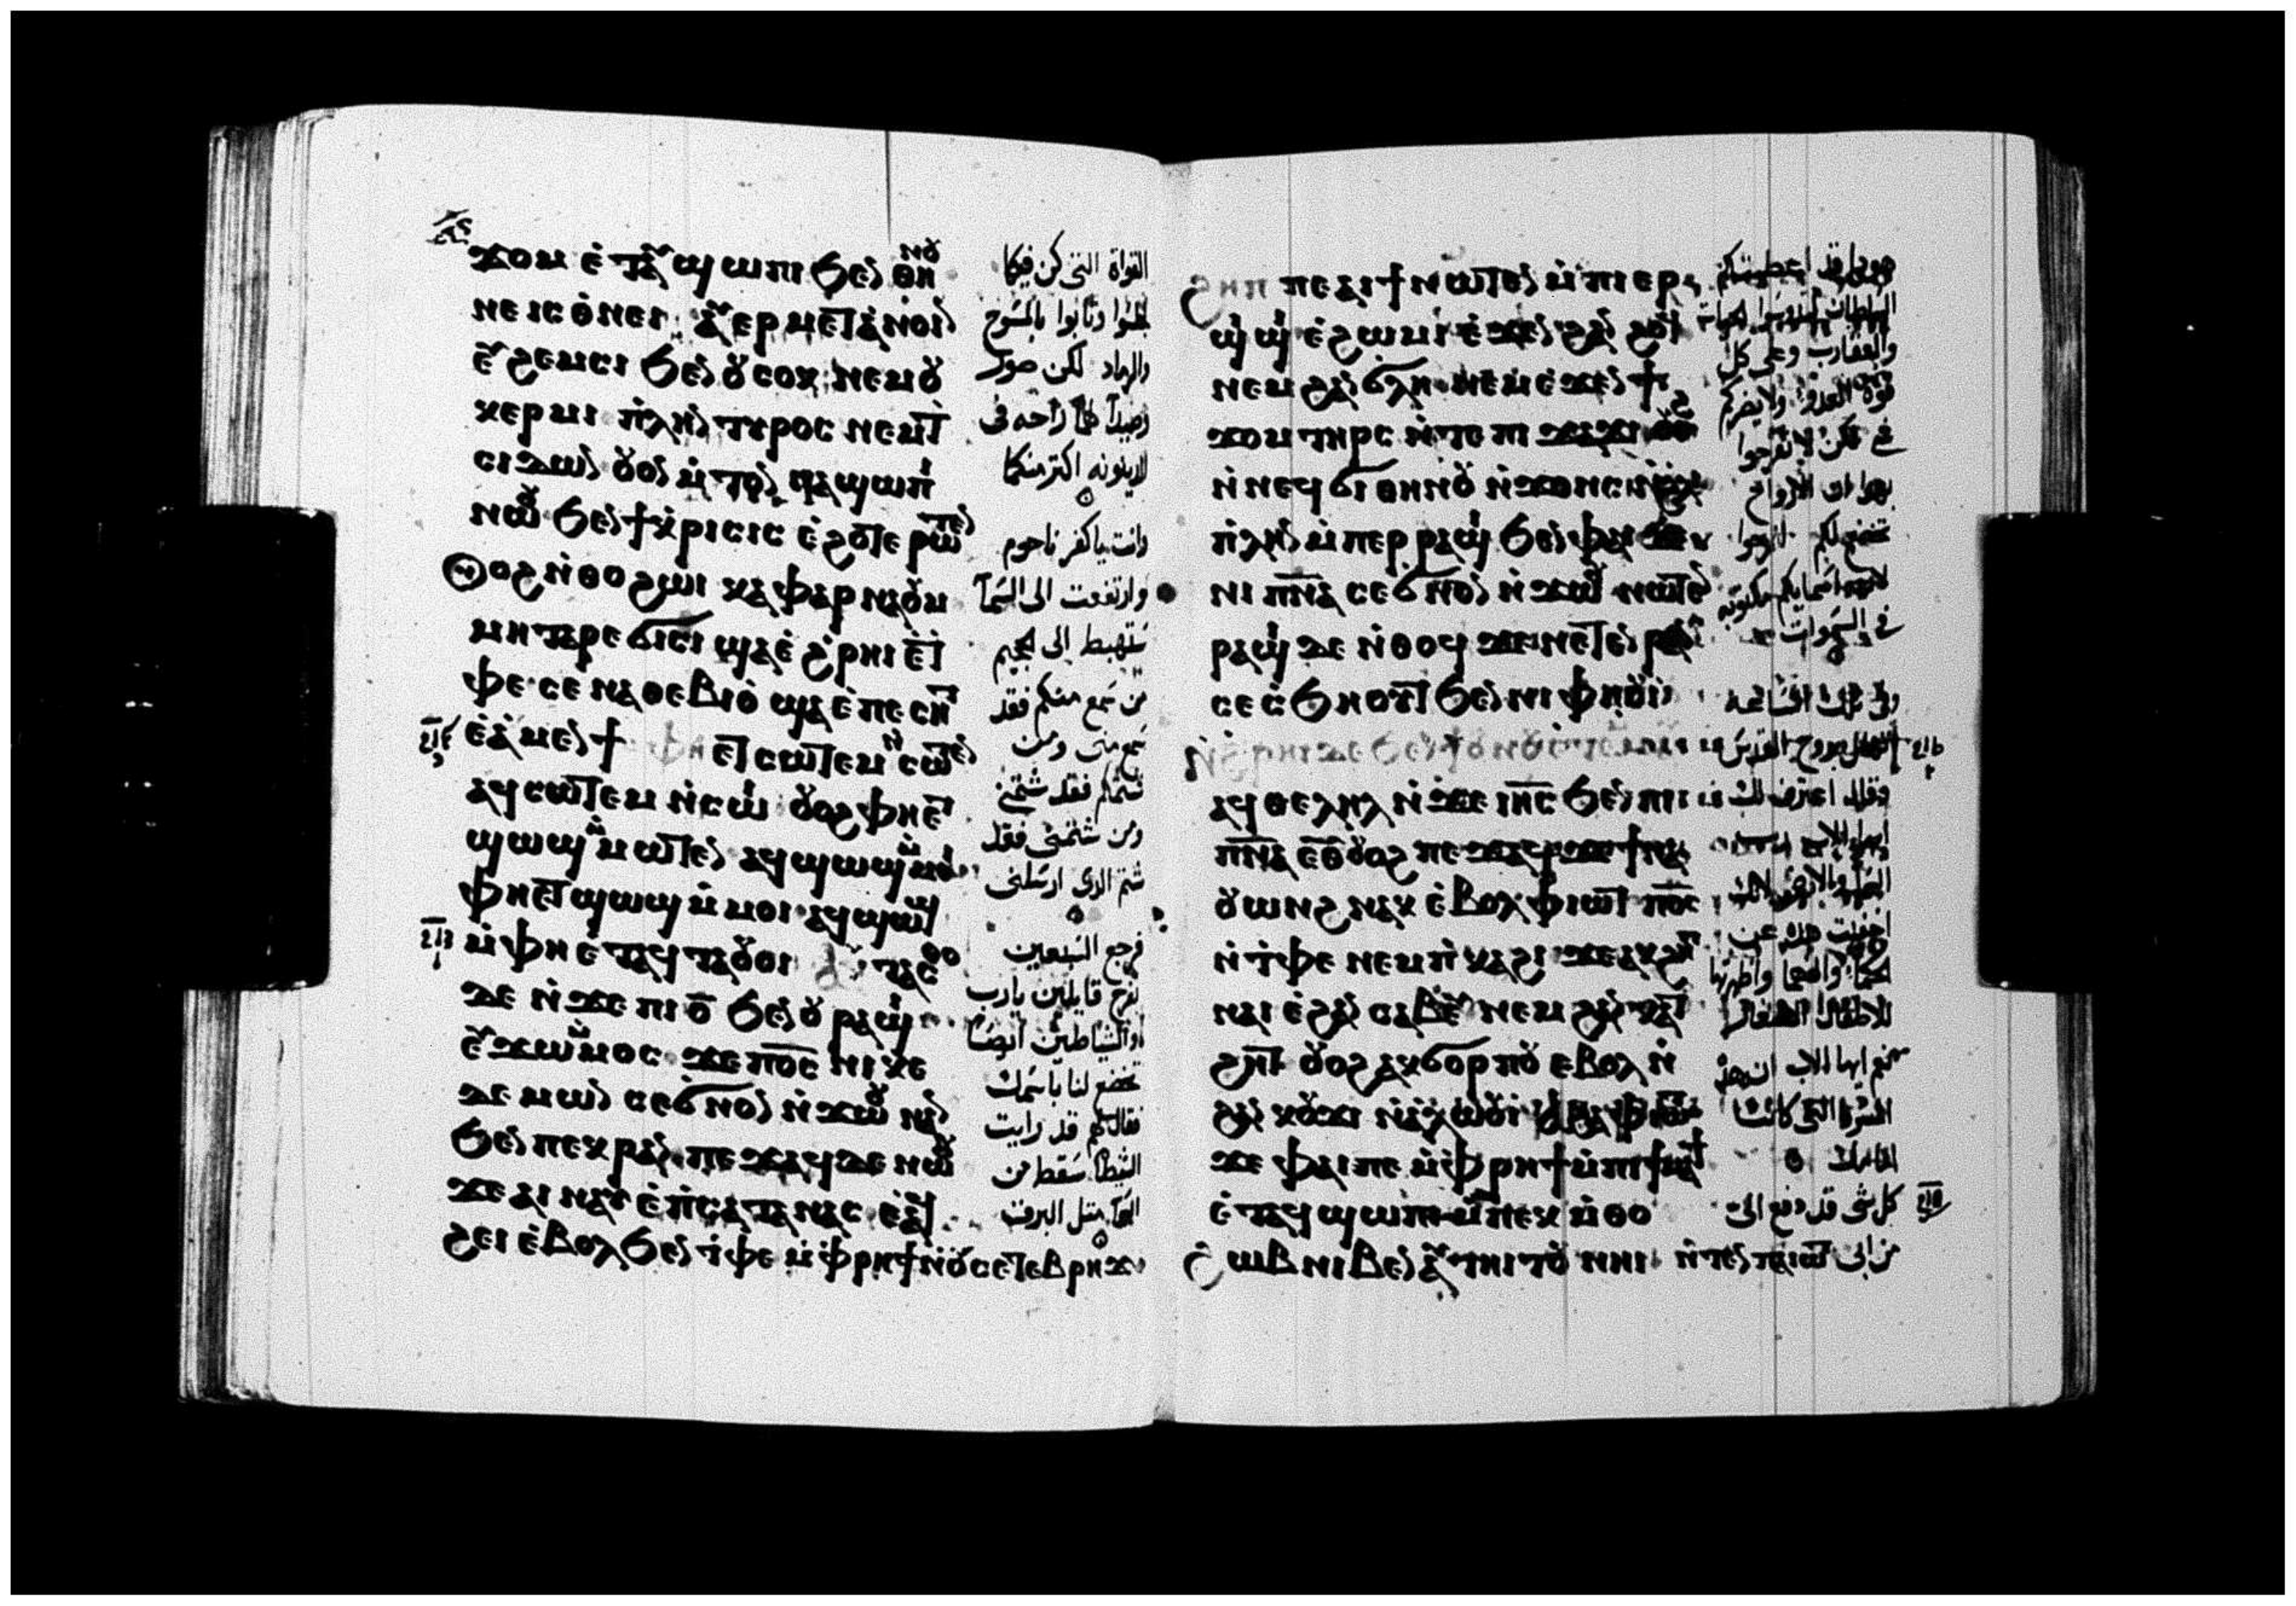 ϫⲟⲙ ⲉ̀ⲧⲁⲩϣⲱⲡⲓ ϧⲉⲛ ⲑⲏⲛⲟⲩ
ⲛⲉ ⲓⲥ ⲟ̀ⲛⲉⲓ ⲁⲩⲉⲣⲙⲉⲧⲁ̀ⲛⲟⲓⲛ
ⲉⲩϩⲉⲙⲥⲓ ϧⲉⲛ ⲟⲩⲥⲟⲕ ⲛⲉⲙ ⲟⲩ
ⲕⲉⲣⲙⲓ ⲡ̀ⲗⲏⲛ ⲧⲩⲣⲟⲥ ⲛⲉⲙ ⲧ
ⲥⲓⲇⲱⲛ ⲟⲩⲟⲛ ⲙ̀ⲧⲟⲛ ⲛⲁϣⲱⲡⲓ
ⲛⲱⲟⲩ ϧⲉⲛ ϯⲕ̀ⲣⲓⲥⲓⲥ ⲉ̀ϩⲟⲧⲉ ⲣⲱⲧⲉⲛ
ⲟⲩⲟϩ ⲛ̀ⲑⲟ ϩⲱⲓ ⲕⲁⲫⲁⲣⲛⲁⲟⲩⲙ
ⲙⲏ ⲧⲉⲣⲉϭⲓⲥⲓ ϣⲁ ⲉ̀ϩ̀ⲣⲏⲓ ⲉ̀ⲧ
ⲫⲉ ⲥⲉⲛⲁⲑⲉⲃⲓⲟ ϣⲁ ⲉ̀ⲡⲉⲥⲏⲧ
ⲉ̀ⲁ̀ⲙⲉⲛϯ ⲫⲏ ⲉⲧⲥⲱⲧⲉⲙ ⲛ̀ⲥⲱⲧⲉⲛ
ⲁϥⲥⲱⲧⲉⲙ ⲛ̀ⲥⲱⲓ ⲟⲩⲟϩ ⲫⲏ ⲉⲧ
ϣⲱϣϥ ⲙ̀ⲙⲱⲧⲉⲛ ⲁϥϣⲱϣϥ ⲙ̀ⲙⲟⲓ
ⲫⲏ ⲉⲧϣⲱϣ ⲙ̀ⲙⲟⲓ ⲁϥϣⲱϣϥ
ⲙ̀ⲫⲏ ⲉ̀ⲧⲁϥⲧⲁⲟⲩⲟⲓ ⲁⲩⲧⲁⲥⲑⲟ
ⲇⲉ ⲛ̀ϫⲉ ⲡⲓ ⲟ̅ ϧⲉⲛ ⲟⲩⲣⲁϣⲓ
ⲉⲩϫⲱ ⲙ̀ⲙⲟⲥ ϫⲉ ⲡⲟ̅ⲥ̅ ⲛⲓⲕⲉ
ⲇⲉⲙⲱⲛ ⲥⲉϭⲛⲟⲛ ⲛ̀ϫⲱⲟⲩ ⲛⲁⲛ
ϧⲉⲛ ⲡⲉⲕⲣⲁⲛ ⲡⲉϫⲁϥ ⲇⲉ ⲛⲱⲟⲩ
ϫⲉ ⲁⲓⲛⲁⲩ ⲉ̀ⲡ̀ⲥⲁⲧⲁⲛⲁⲥ ⲉ̀ⲁϥ
ϩⲉⲓ ⲉ̀ⲃⲟⲗ ϧⲉⲛ ⲧ̀ⲫⲉ ⲙ̀ⲫⲣⲏϯ ⲛ̀ⲟⲩⲥⲉⲧⲉⲃⲣⲏϫ
القواة التى كن فيكما
لجلسوا وتابوا بالمسوح
والرماد لكن صور
وصيدا لهما راحه فى
الدينونه اكتر منكما
وانت ياكفر ناحوم
وارتفعت الى السما
ستهبط الى الجحيم
من سمع منكم فقد
سمع منى ومن
شتمكم فقد شتمنى
ومن شتمنى فقد
شتم الذى ارسلنى
فرجع السبعين
بفرح قايلين يارب
والشياطين ايضا
تخضع لنا باسمك
فقال لهم قد رايت
الشيطان سقط من
السما متل البرق
ϩⲏⲡⲡⲉ ⲁⲓϯ ⲛⲱⲧⲉⲛ ⲙ̀ⲡⲓⲉⲣ
ϣⲓϣⲓ ⲉ̀ϩⲱⲙⲓ ⲉ̀ϫⲉⲛ ϩⲁⲛ ϩⲟϥ
ⲛⲉⲙ ϩⲁⲛ ϭⲗⲏ ⲛⲉⲙ ⲉ̀ϫⲉⲛ ϯ
ϫⲟⲙ ⲧⲏⲣⲥ ⲛ̀ⲧⲉ ⲡⲓϫⲁϫⲓ
ⲛ̀ⲛⲉϥϭⲓ ⲑⲏⲛⲟⲩ ⲛ̀ϫⲟⲛⲥ
ⲡ̀ⲗⲏⲛ ⲙ̀ⲡⲉⲣⲣⲁϣⲓ ϧⲉⲛ ⲫⲁⲓ ϫⲉ
ⲛⲓ ⲡ̅ⲛ̅ⲁ̅ ⲥⲉϭⲛⲟⲛ ⲛ̀ϫⲱⲟⲩ ⲛⲱⲧⲉⲛ
ⲣⲁϣⲓ ⲇⲉ ⲛ̀ⲑⲟϥ ϫⲉ ⲛⲉⲧⲉⲛⲣⲁⲛ
ⲥⲉⲥ̀ϧⲏⲟⲩⲧ ϧⲉⲛ ⲛⲓⲫⲏⲟⲩⲓ̀
ⲛ̀ϩ̀ⲣⲏⲓ ⲇⲉ ϧⲉⲛ ϯⲟⲩⲛⲟⲩ ⲉ̀ⲧⲉⲙⲙⲁⲩ
ⲁϥⲑⲉⲗⲏⲗ ⲛ̀ϫⲉ ⲓⲏ̅ⲥ̅ ϧⲉⲛ ⲡⲓ
ⲡ̅ⲛ̅ⲁ̅ ⲉ̅ⲑ̅ⲩ̅ ⲟⲩⲟϩ ⲡⲉϫⲁϥ ϫⲉ ϯⲛⲁ
ⲟⲩⲱⲛϩ ⲛⲁⲕ ⲉ̀ⲃⲟⲗ ⲫⲓⲱⲧ ⲡⲟ̅ⲥ̅
ⲛ̀ⲧ̀ⲫⲉ ⲛⲉⲙ ⲡ̀ⲕⲁϩⲓ ϫⲉ ⲁⲕϩⲉⲡ
ⲛⲁⲓ ⲉ̀ϩⲁⲛ ⲥⲁⲃⲉⲩ ⲛⲉⲙ ϩⲁⲛ ⲕⲁⲧ
ϩⲏⲧ ⲟⲩⲟϩ ⲁⲕϭⲟⲣⲡⲟⲩ ⲉⲃⲟⲗ ⲛ̀
ϩⲁⲛ ⲕⲟⲩϫⲓ ⲛ̀ⲁ̀ⲗⲱⲟⲩⲓ̀ ⲁϩⲁ ⲫⲓⲱⲧ
ϫⲉ ⲫⲁⲓ ⲡⲉ ⲙ̀ⲫⲣⲏϯ ⲙ̀ⲡⲓϯⲙⲁϯ
ⲉ̀ⲧⲁϥϣⲱⲡⲓ ⲙ̀ⲡⲉⲕⲙ̀ⲑⲟ
ϩⲱⲃ ⲛⲓⲃⲉⲛ ⲁⲩⲧⲏⲓⲧⲟⲩ ⲛⲏⲓ ⲛ̀ⲧⲉⲛ ⲡⲁⲓⲱⲧ
هوذا قد اعطيتكم
السلطان لتدوسوا الحيات
والعقارب وعلى كل
قوة العدو ولا يضركم
شى لكن لا تفرحوا
بهذا ان الارواح
تخضع لكم افرحوا
لان اسمايكم مكتوبه
فى السموات
وفى تلك الساعه
تهلل بروح القدس
وقال اعترف لك
ايها الاب
السما والارض لانك
اخفيت هذه عن
حكما وفهما واظهرتها
للاطفال الصغار
نعم ايها الاب ان هذه
المسرة التى كانت
امامك
كل شى قد دفع الى
من ابى